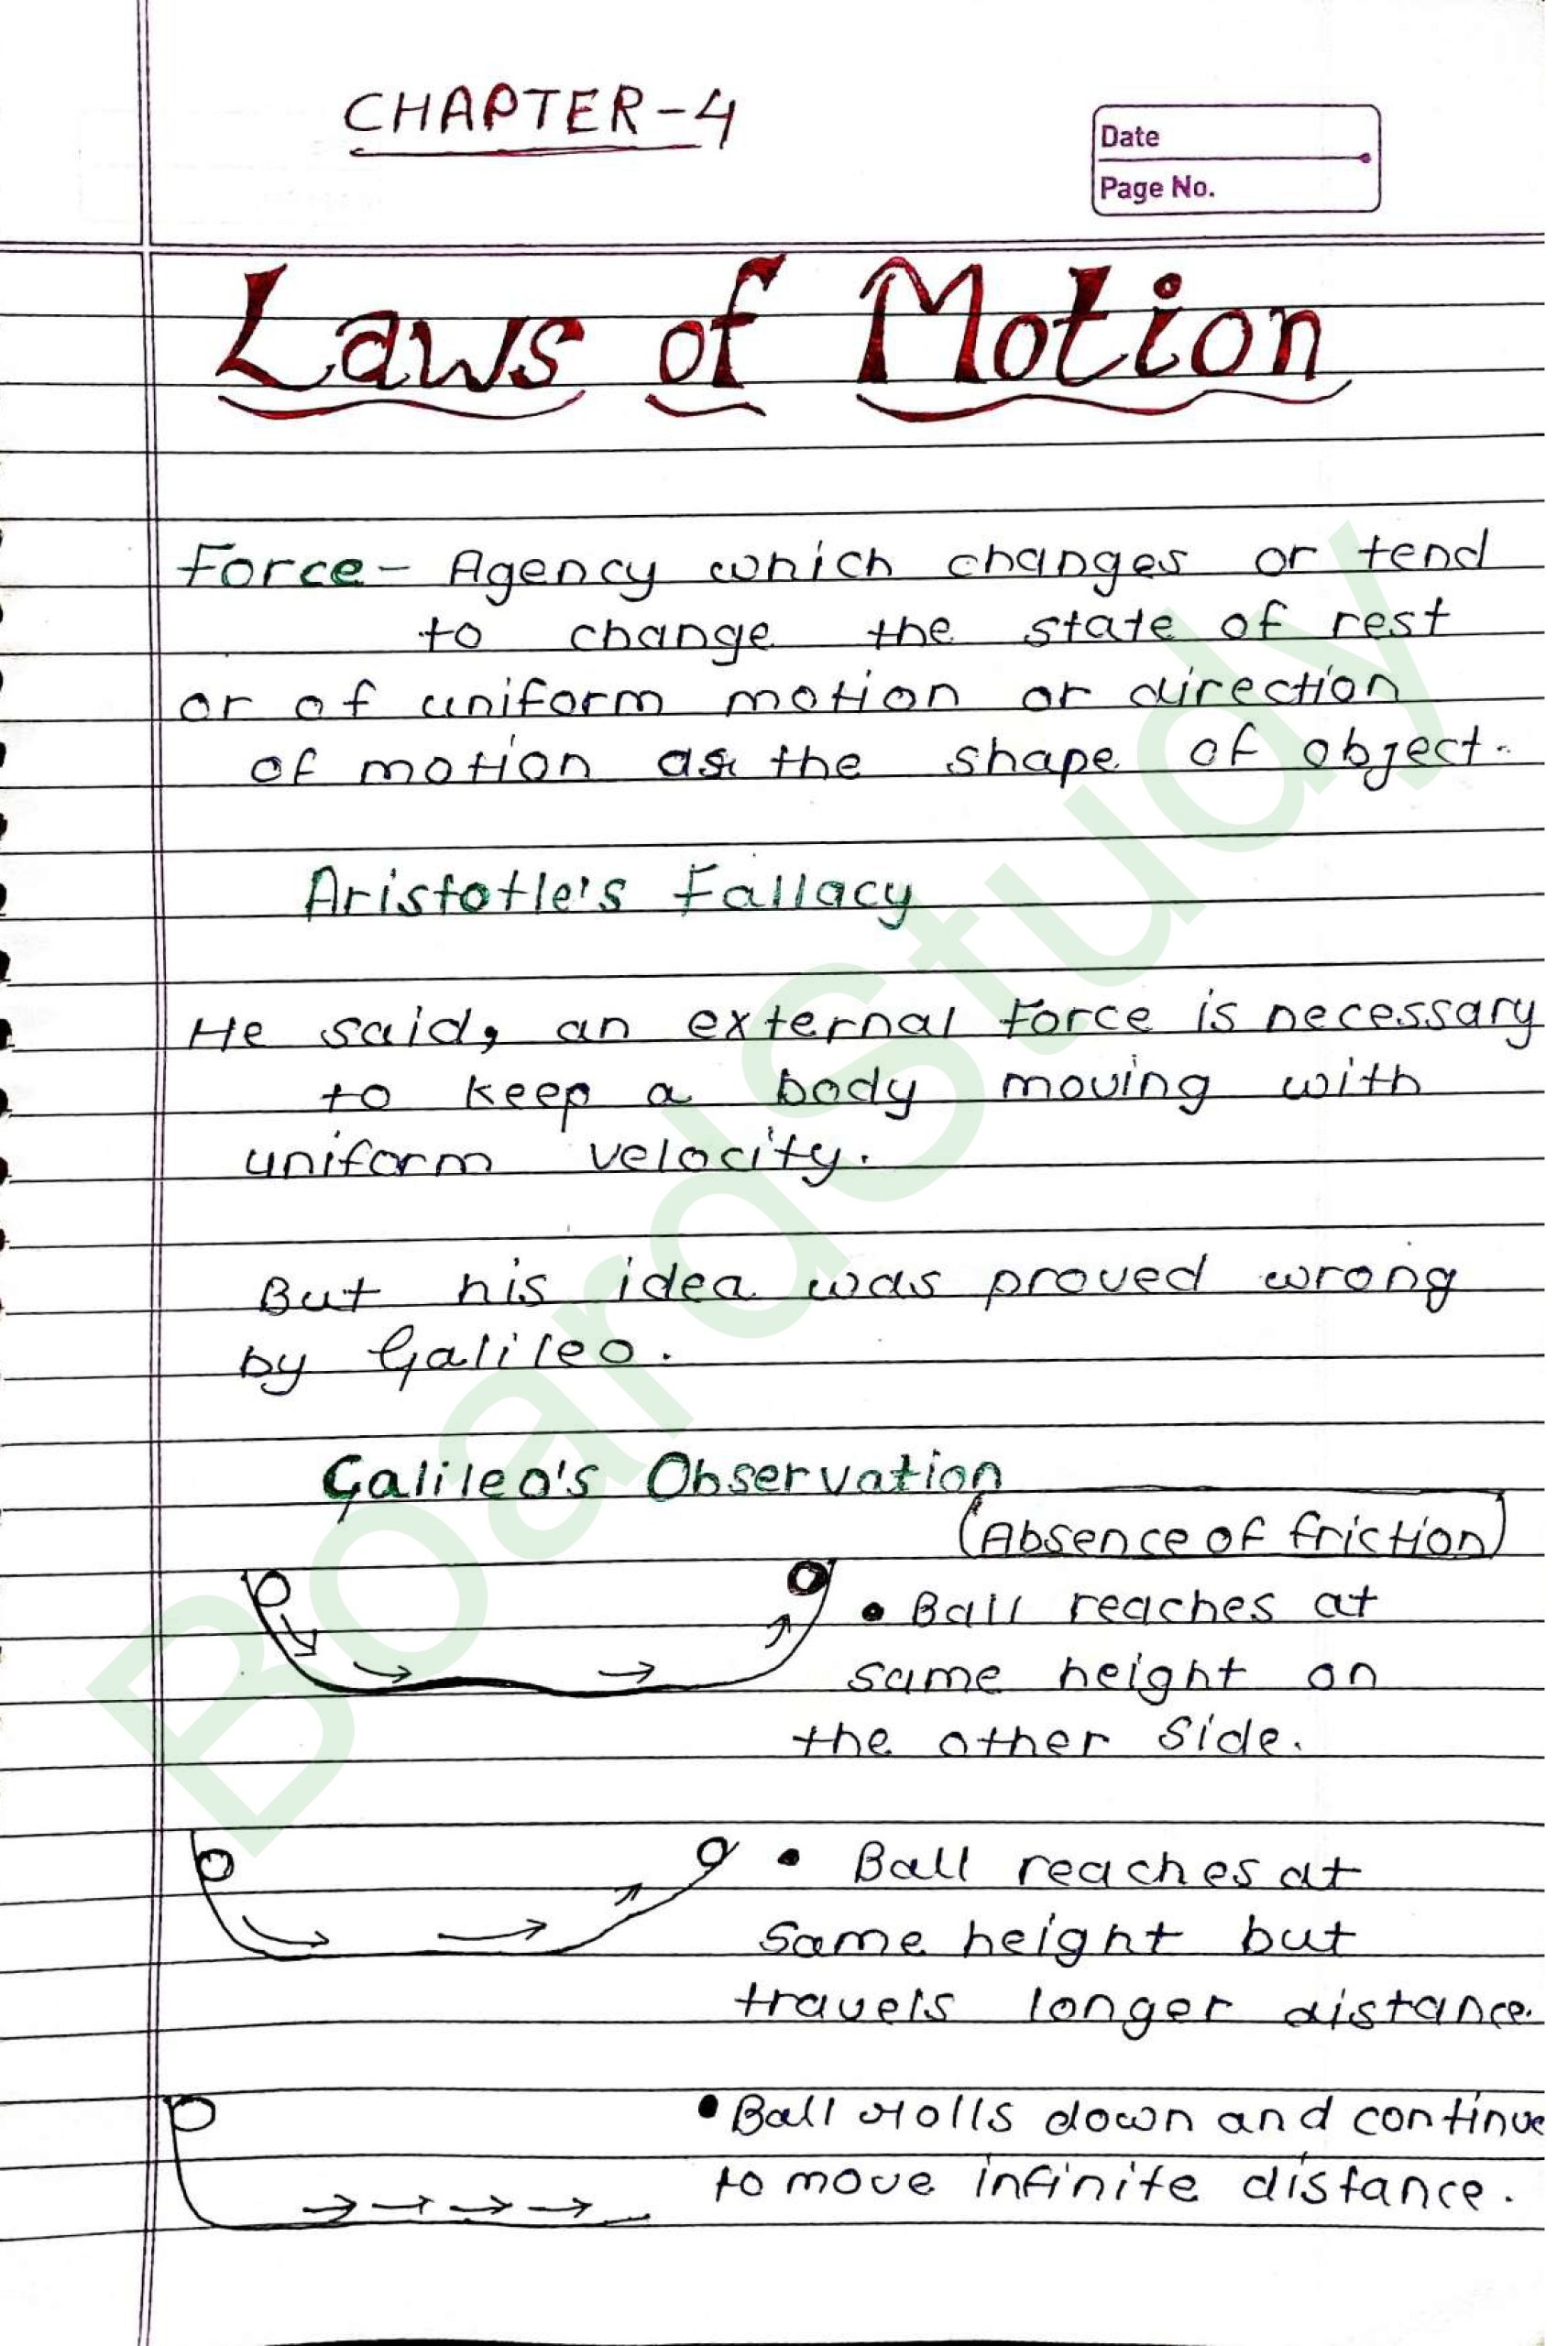 CHAPTER-4
Date
Page No.
Laws of Motion
Force- Agency which changes or tend
to change the state of rest
or of uniform motion or direction
of motion as the shape of object.
Aristotle's Fallacy
He said, an external force is necessary
to keep a body moving with
uniform velocity.
But his idea was proved wrong
by Galileo.
Galileo's Observation
(Absence of friction)
• Ball reaches at
same height on
the other side.
• Ball reaches at
same height but
travels longer distance.
• Ball rolls down and continue
to move infinite distance.
BoardStudy